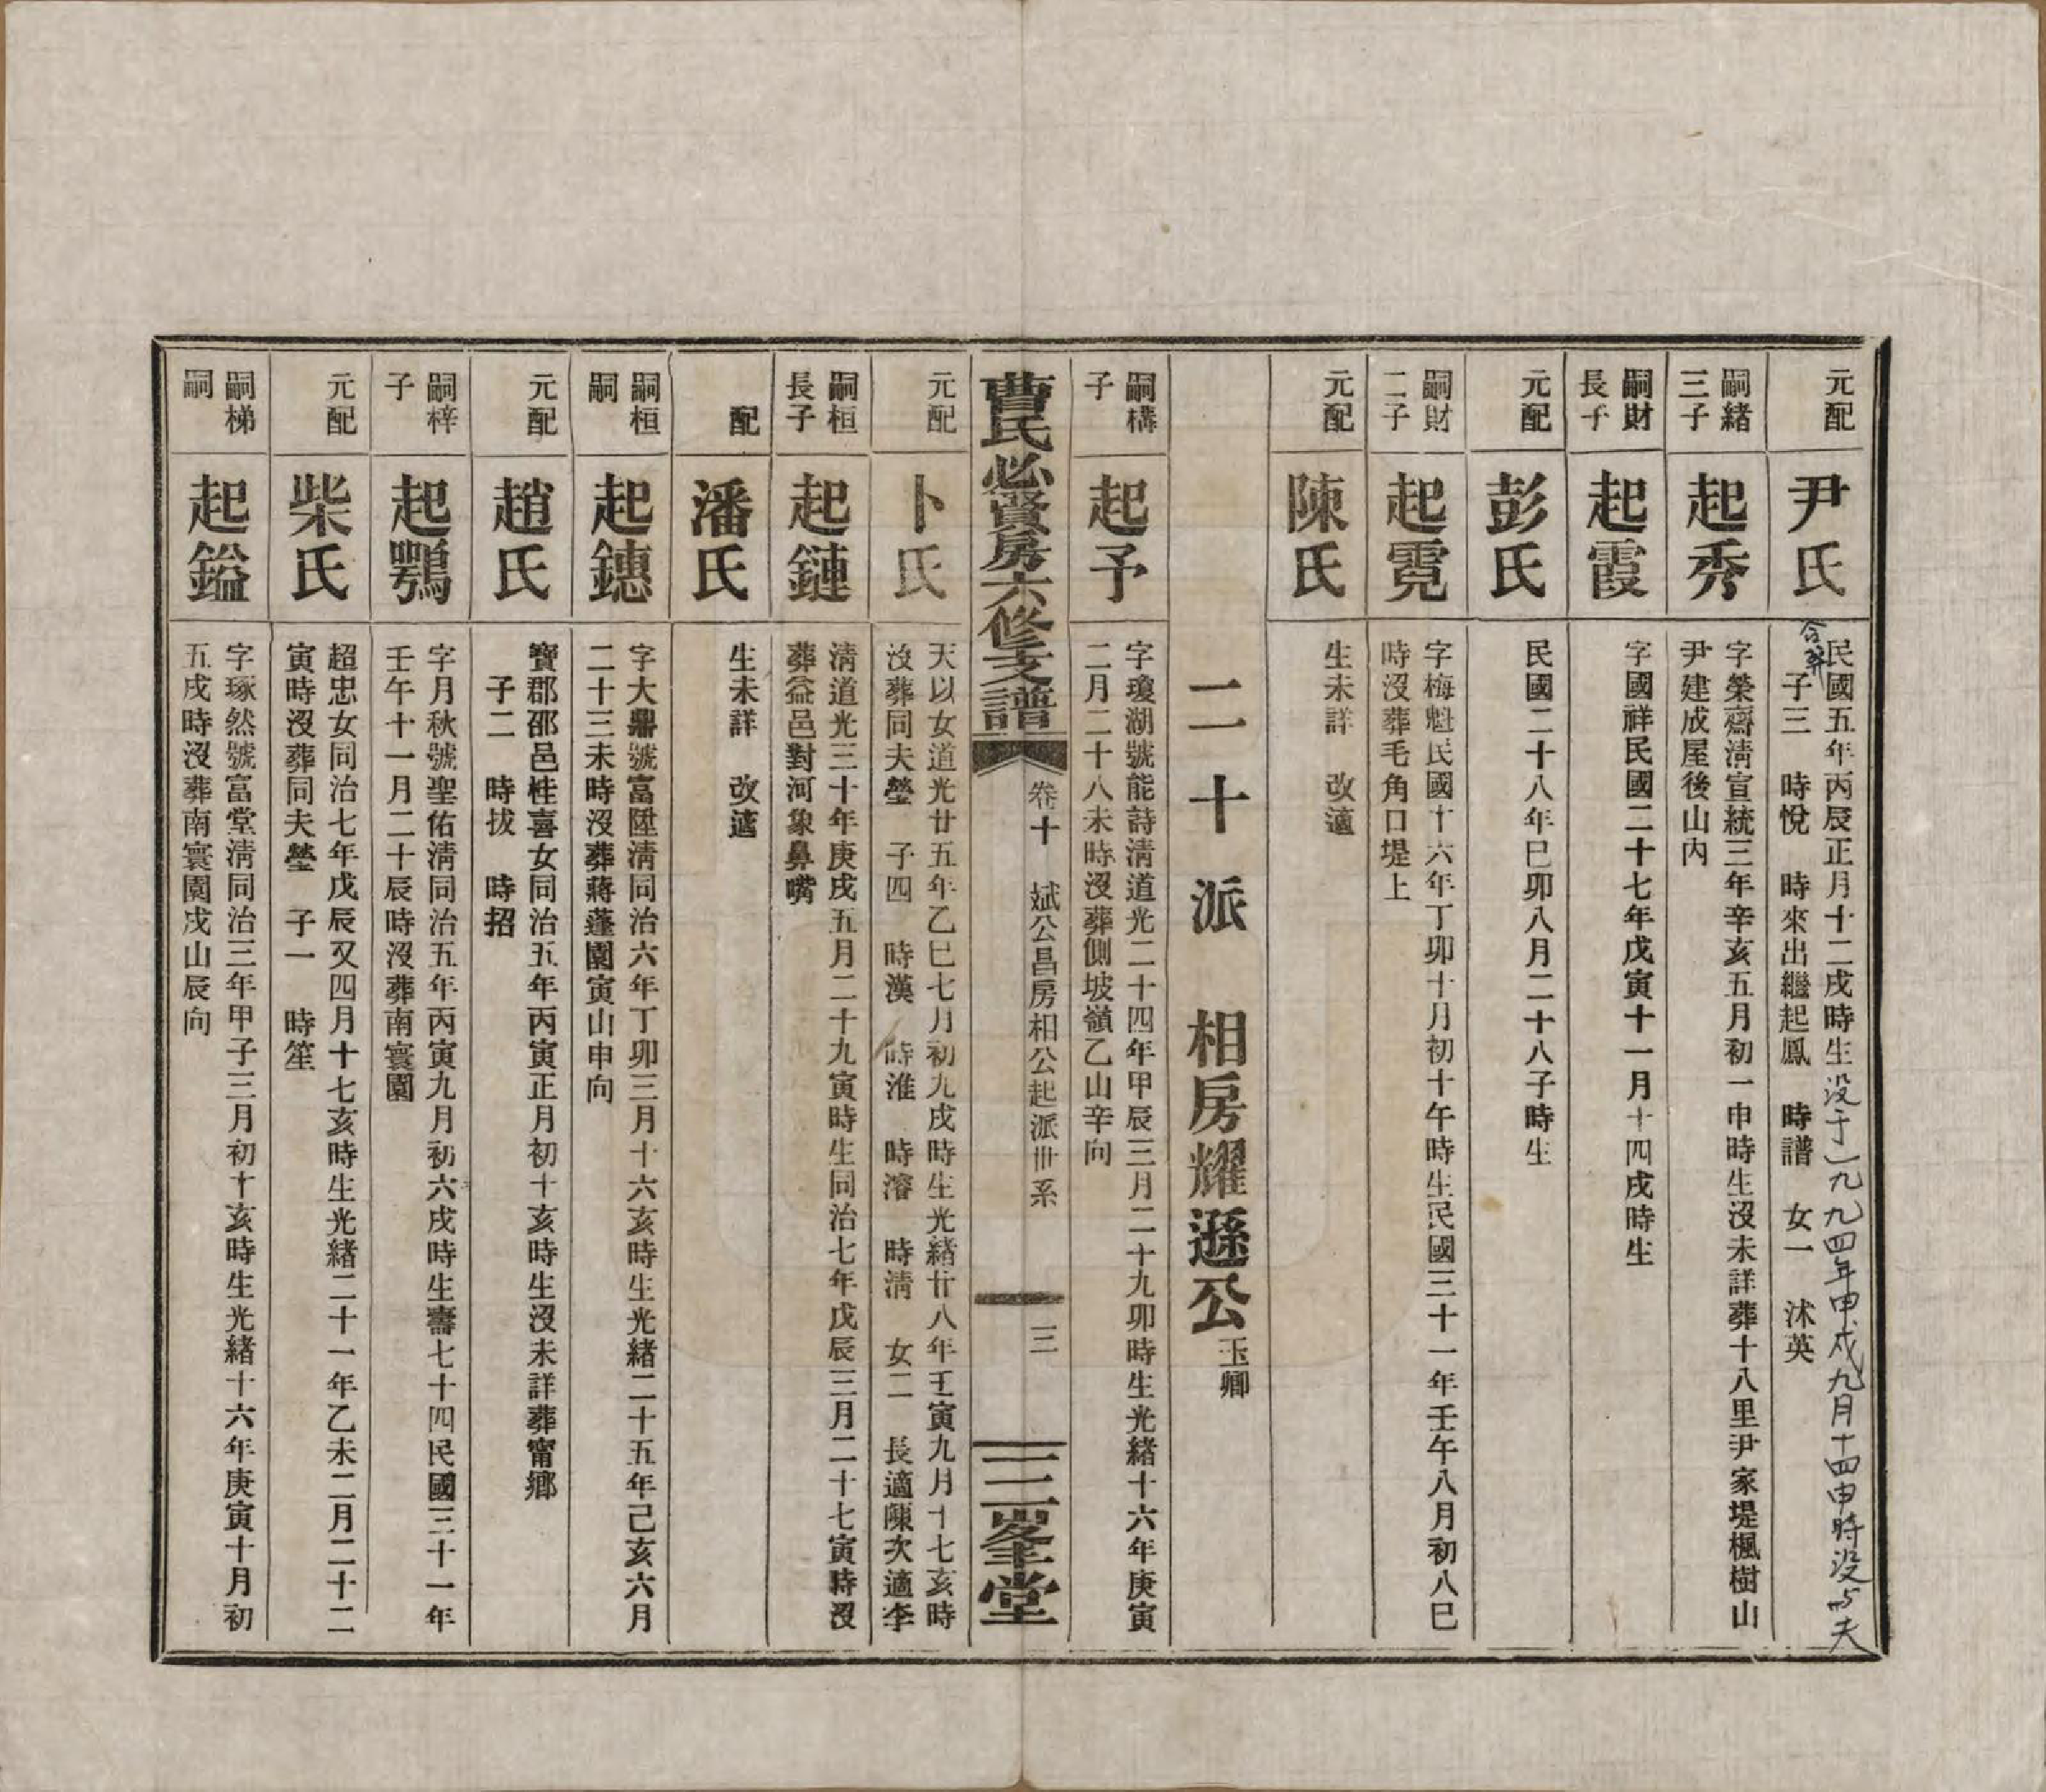 元配
尹氏
民國五年丙辰正月十二戌時生没于一九九四年甲戌九月十四申時没与夫
合葬
子三　時悅　時來出繼起鳳　時譜　女一　沭英
嗣緒
三子
起秀
字榮齋淸宣統三年辛亥五月初一申時生沒未詳葬十八里尹家堤楓樹山
尹建成屋後山內
嗣財
長子
起霞
字國祥民國二十七年戊寅十一月十四戌時生
元配
彭氏
民國二十八年巳卯八月二十八子時生
嗣財
二子
起霓
字梅魁民國十六年丁卯十月初十午時生民國三十一年壬午八月初八巳
時沒葬毛角口堤上
元配
陳氏
生未詳　改適
二十派　相房耀遜公玉卿
嗣構
子
起予
字瓊湖號能詩淸道光二十四年甲辰三月二十九卯時生光緒十六年庚寅
二月二十八未時沒葬側坡嶺乙山辛向
曹氏必賢房六修支譜
卷十　斌公昌房相公起派世系
三
三峯堂
元配
卜氏
天以女道光廿五年乙巳七月初九戌時生光緒廿八年壬寅九月十七亥時
沒葬同夫塋　子四　時漢　時淮　時溶　時淸　女二　長適陳次適李
嗣桓
長子
起鏈
淸道光三十年庚戌五月二十九寅時生同治七年戊辰三月二十七寅時沒
葬益邑對河象鼻嘴
配
潘氏
生未詳　改適
嗣桓
嗣
起鏸
字大鼎號富陞淸同治六年丁卯三月十六亥時生光緒二十五年己亥六月
二十三未時沒葬蔣蓬園寅山申向
元配
趙氏
寶郡邵邑桂喜女同治五年丙寅正月初十亥時生沒未詳葬甯鄕
子二　時拔　時招
嗣梓
子
起鶚
字月秋號聖佑淸同治五年丙寅九月初六戌時生壽七十四民國三十一年
壬午十一月二十辰時沒葬南寰園
元配
柴氏
超忠女同治七年戊辰又四月十七亥時生光緒二十一年乙未二月二十二
寅時沒葬同夫塋　子一　時笙
嗣梯
嗣
起鎰
字琢然號富堂淸同治三年甲子三月初十亥時生光緒十六年庚寅十月初
五戌時沒葬南寰園戌山辰向